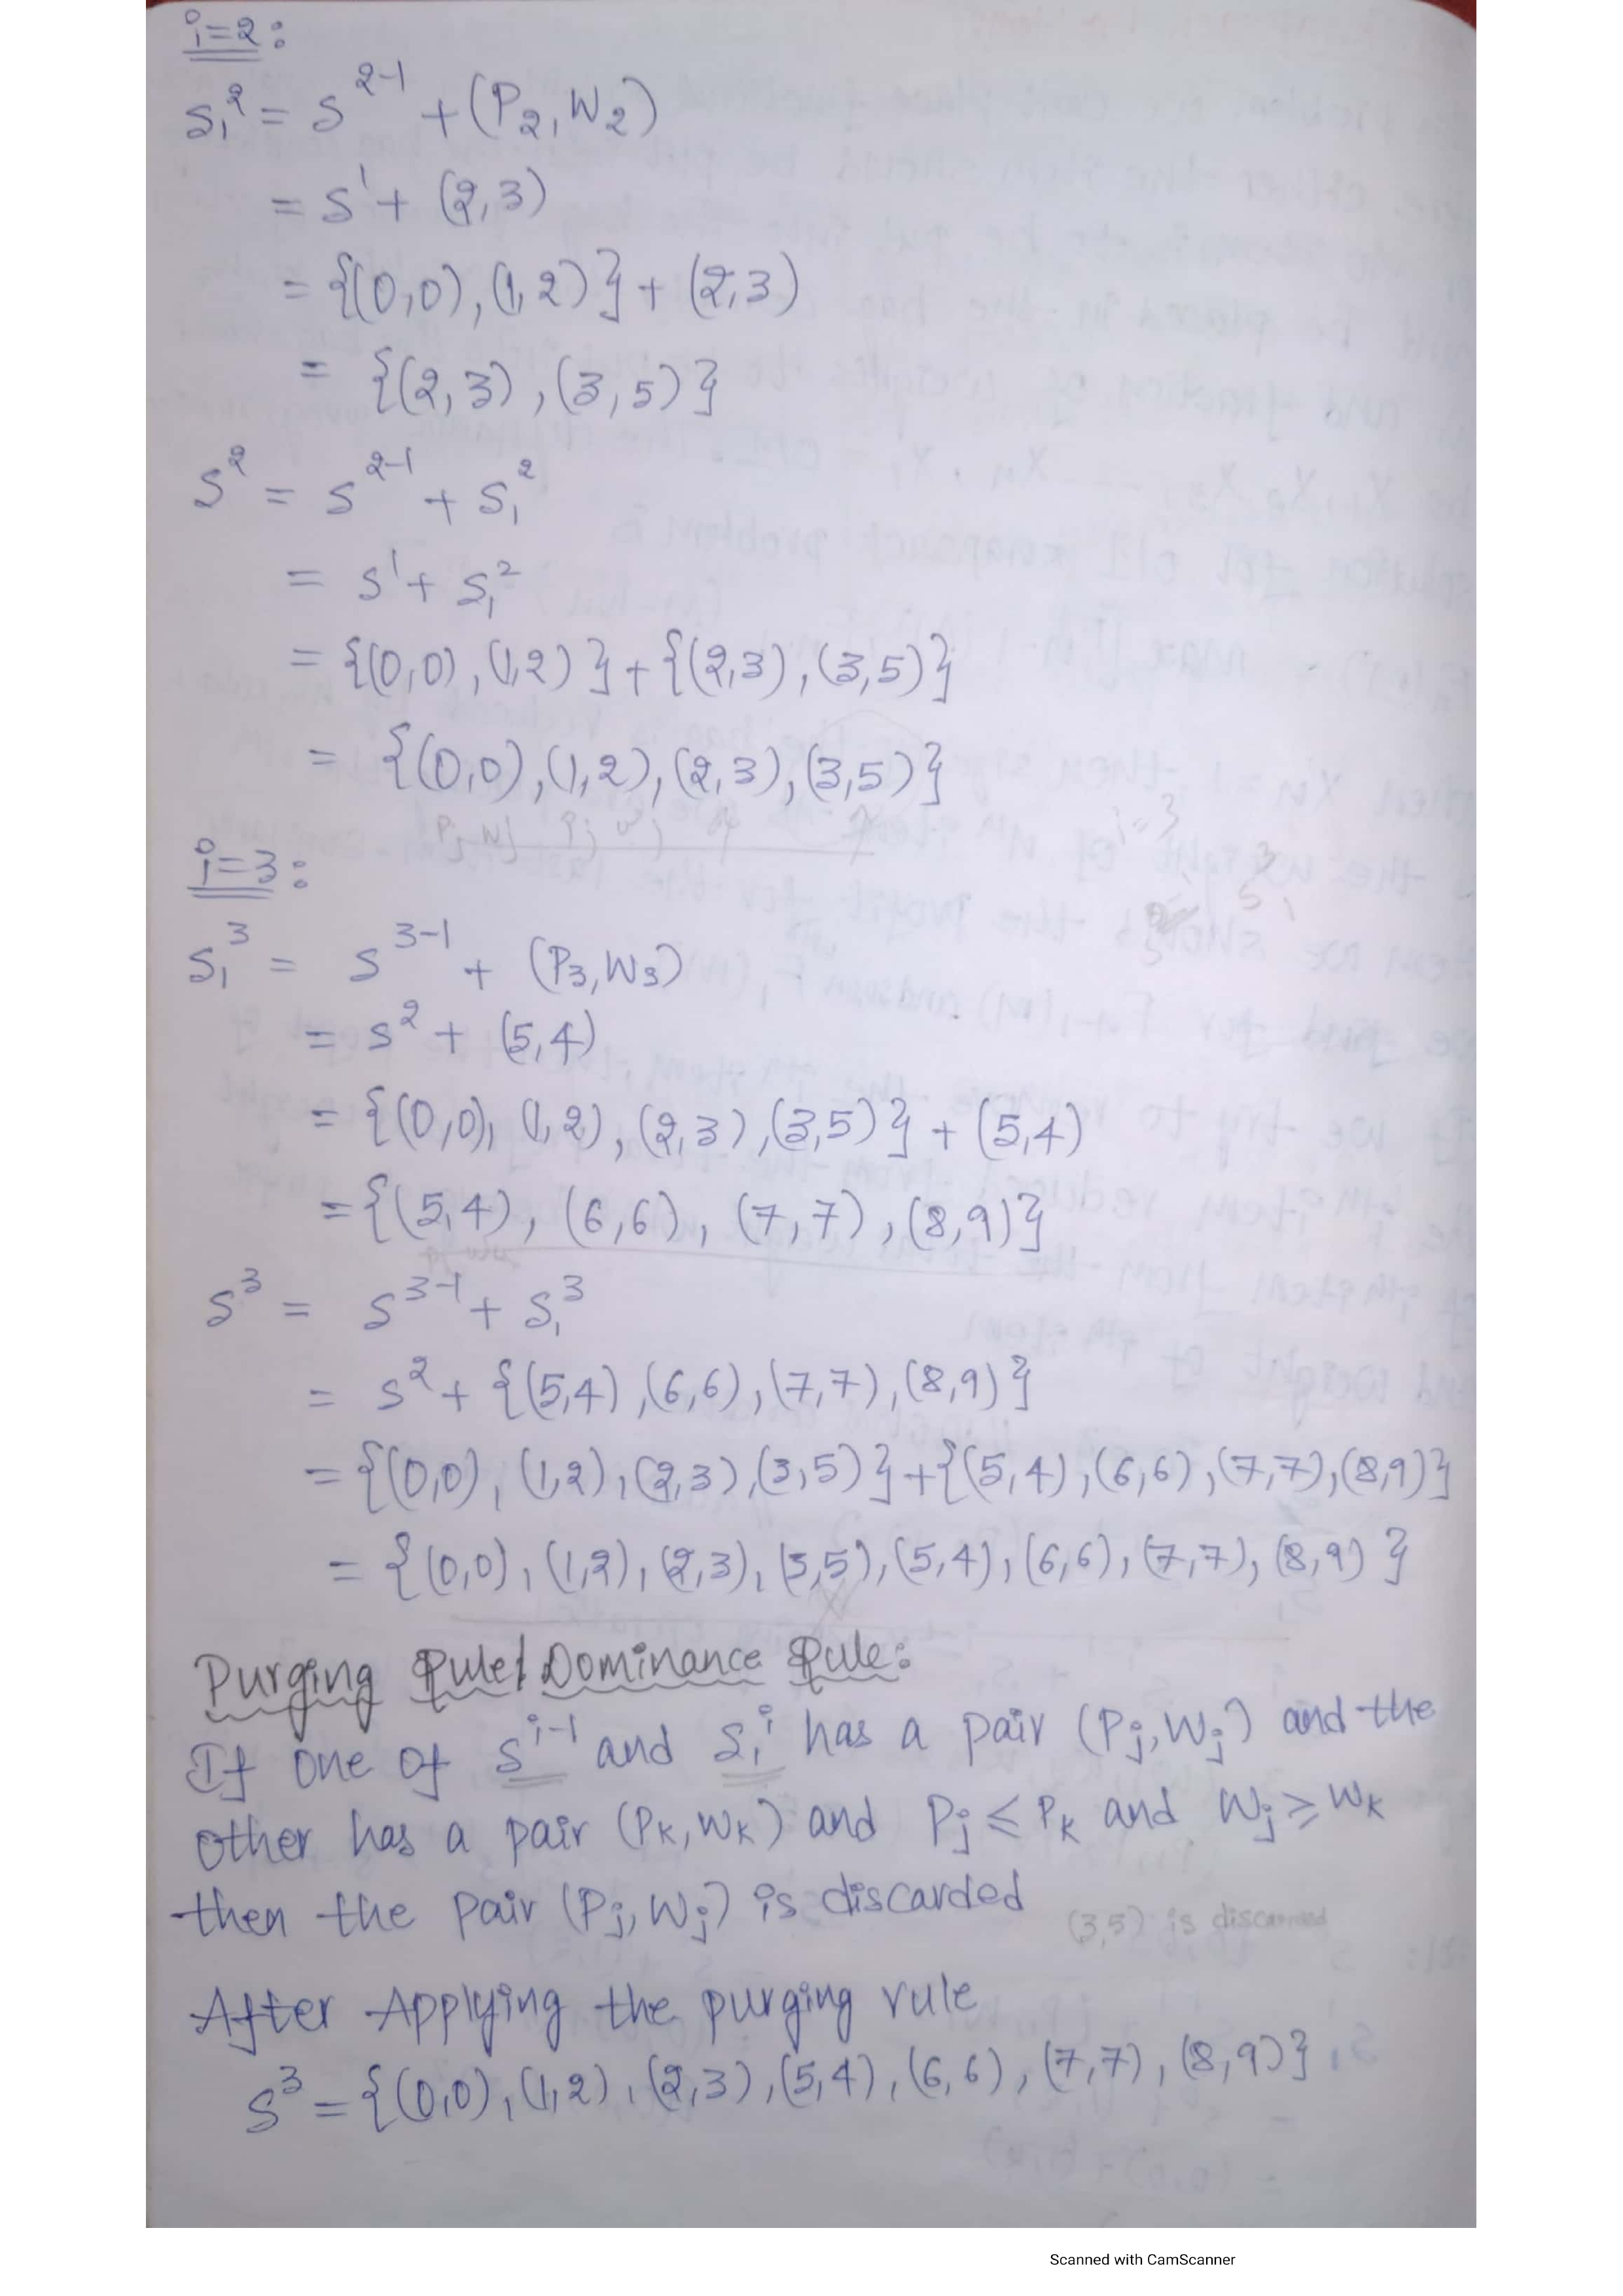 i=2:
S₁² = S²⁻¹ + (P₂, W₂)
= S¹ + (2,3)
= {(0,0), (1,2)} + (2,3)
= {(2,3), (3,5)}
S² = S²⁻¹ + S₁²
= S¹ + S₁²
= {(0,0), (1,2)} + {(2,3), (3,5)}
= {(0,0), (1,2), (2,3), (3,5)}
Pj Wj Pj Wj
i=3
i=3:
S₁³ = S³⁻¹ + (P₃, W₃)
= S² + (5,4)
= {(0,0), (1,2), (2,3), (3,5)} + (5,4)
= {(5,4), (6,6), (7,7), (8,9)}
S³ = S³⁻¹ + S₁³
= S² + {(5,4), (6,6), (7,7), (8,9)}
= {(0,0), (1,2), (2,3), (3,5)} + {(5,4), (6,6), (7,7), (8,9)}
= {(0,0), (1,2), (2,3), (3,5), (5,4), (6,6), (7,7), (8,9)}
Purging Rule/ Dominance Rule:
If one of Sⁱ⁻¹ and S₁ⁱ has a pair (Pj, Wj) and the
other has a pair (Pk, Wk) and Pj ≤ Pk and Wj ≥ Wk
then the pair (Pj, Wj) is discarded
(3,5) is discarded
After Applying the purging rule
S³ = {(0,0), (1,2), (2,3), (5,4), (6,6), (7,7), (8,9)}
Scanned with CamScanner